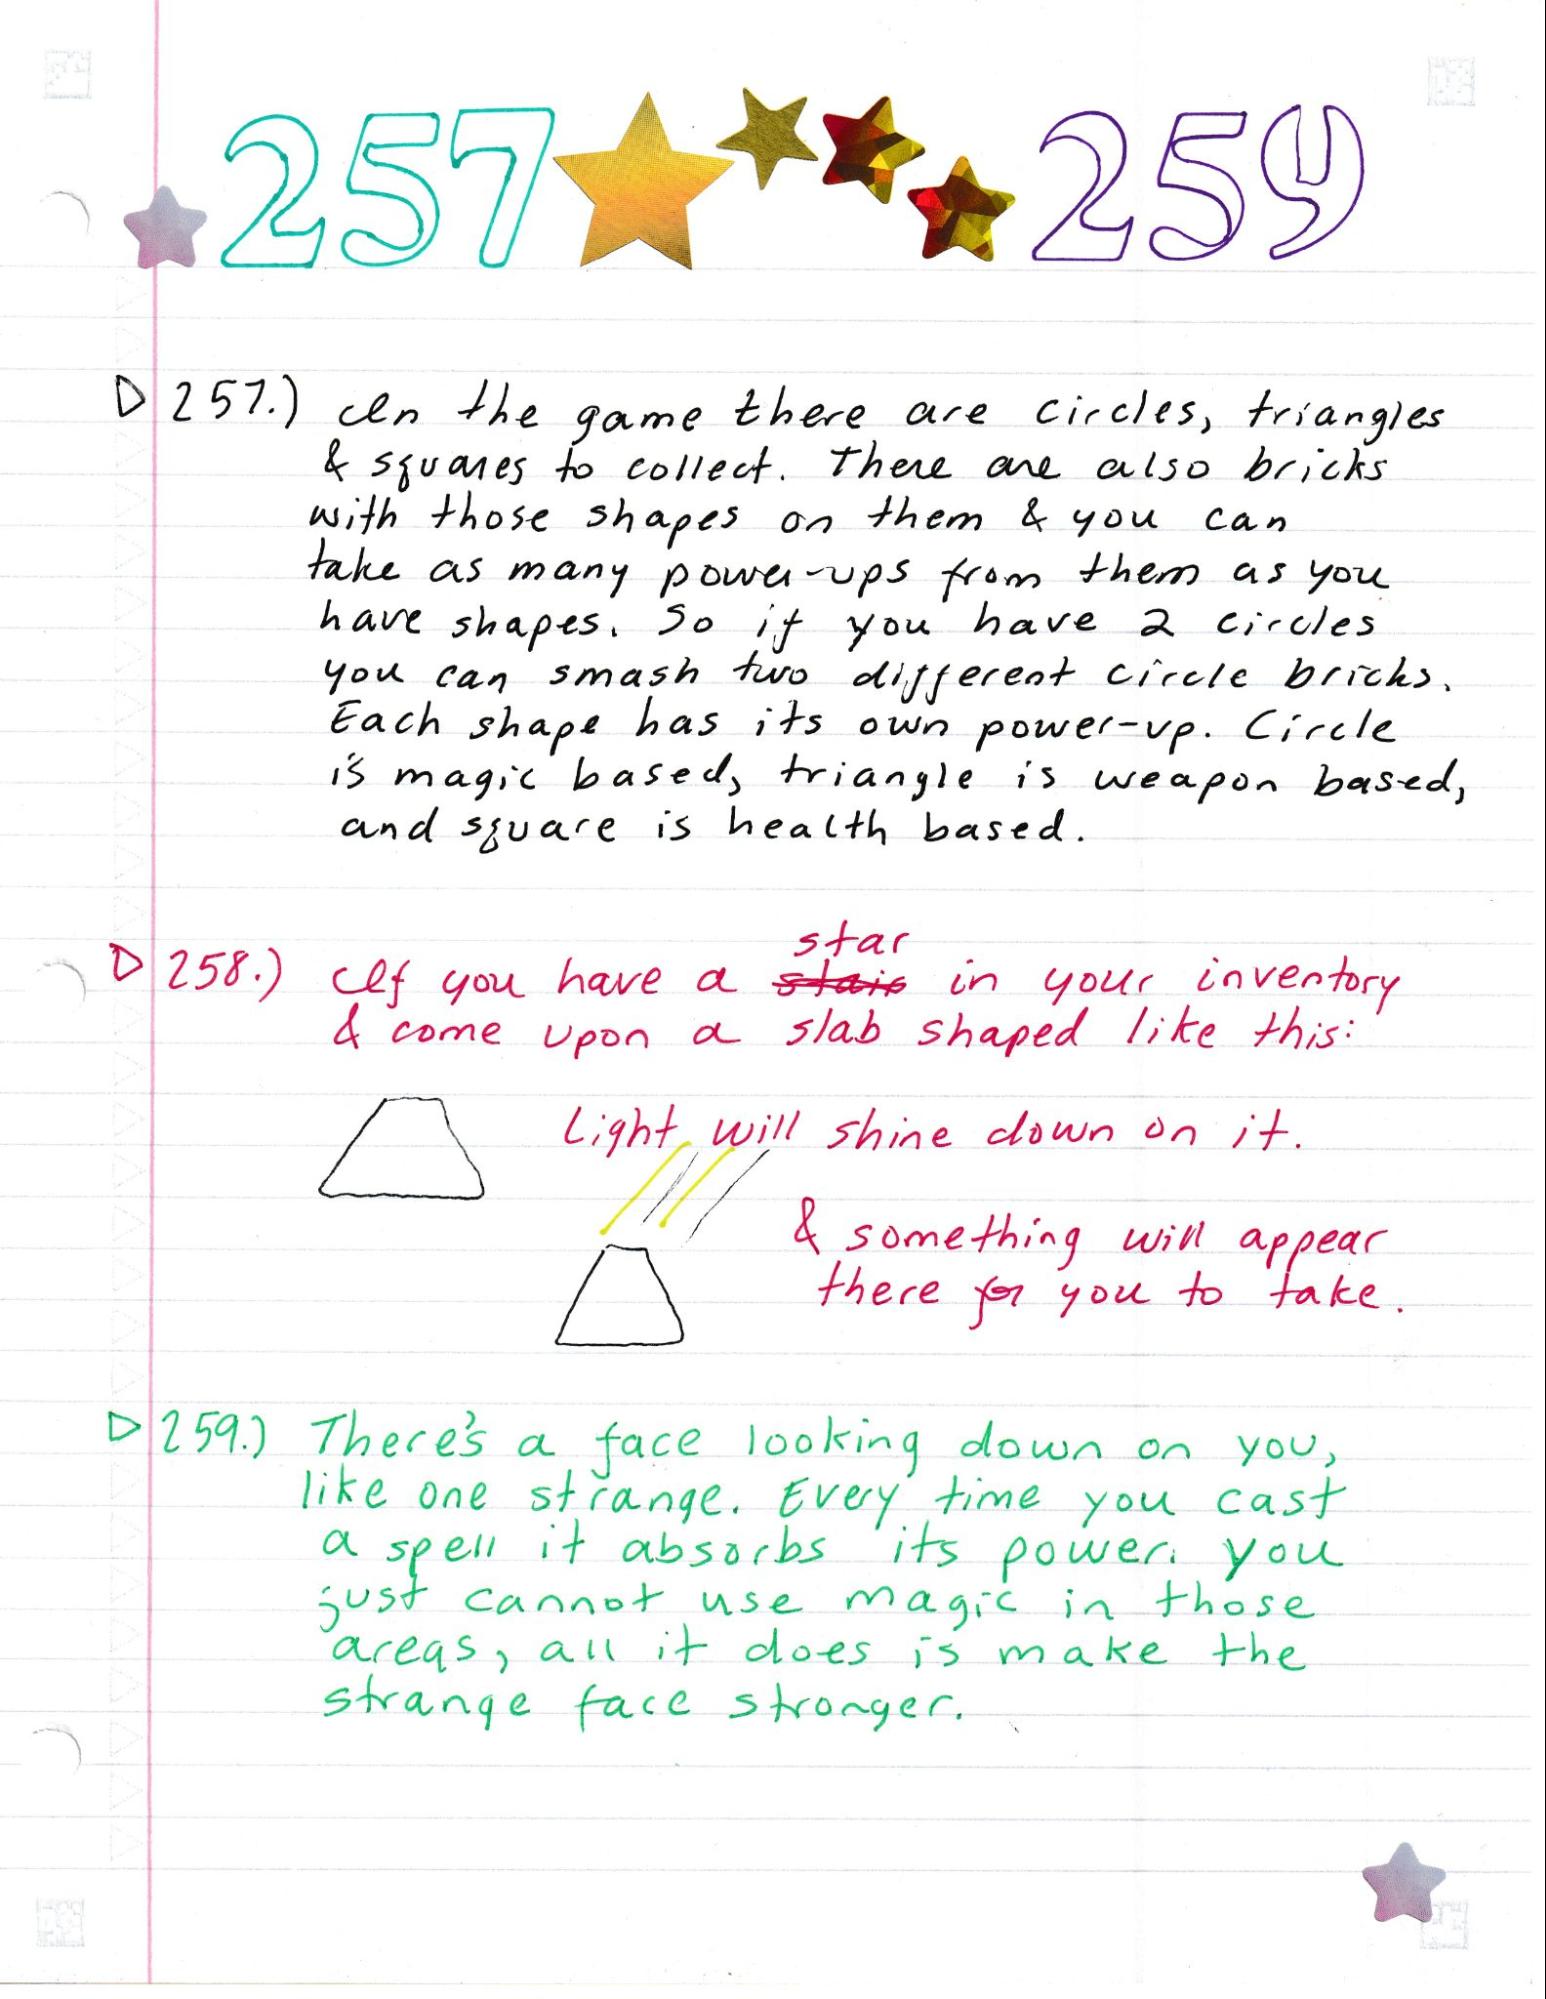 257 259
257.) In the game there are circles, triangles
& squares to collect. There are also bricks
with those shapes on them & you can
take as many power-ups from them as you
have shapes. So if you have 2 circles
you can smash two different circle bricks.
Each shape has its own power-up. Circle
is magic based, triangle is weapon based,
and square is health based.
star
258.) If you have a stair in your inventory
& come upon a slab shaped like this:
Light will shine down on it.
& something will appear
there for you to take.
259.) There's a face looking down on you,
like one strange. Every time you cast
a spell it absorbs its power. you
just cannot use magic in those
areas, all it does is make the
strange face stronger.